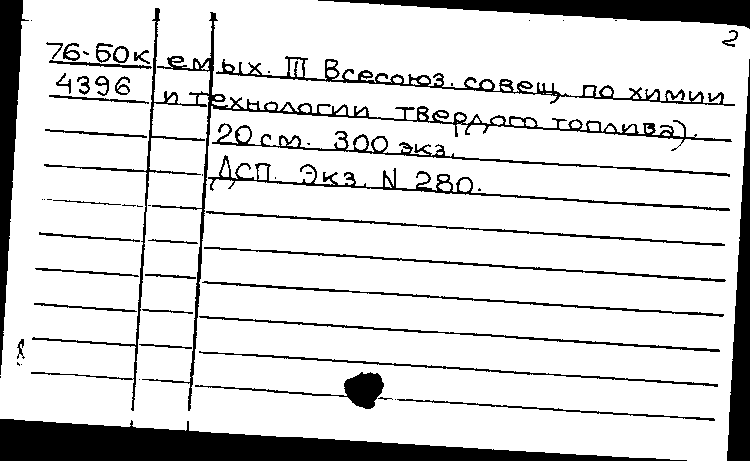 2
76-60к емых. III Всесоюз. совещ. по химии
4396 и технологии твердого топлива).
20 см. 300 экз.
ДСП. Экз. N 280.